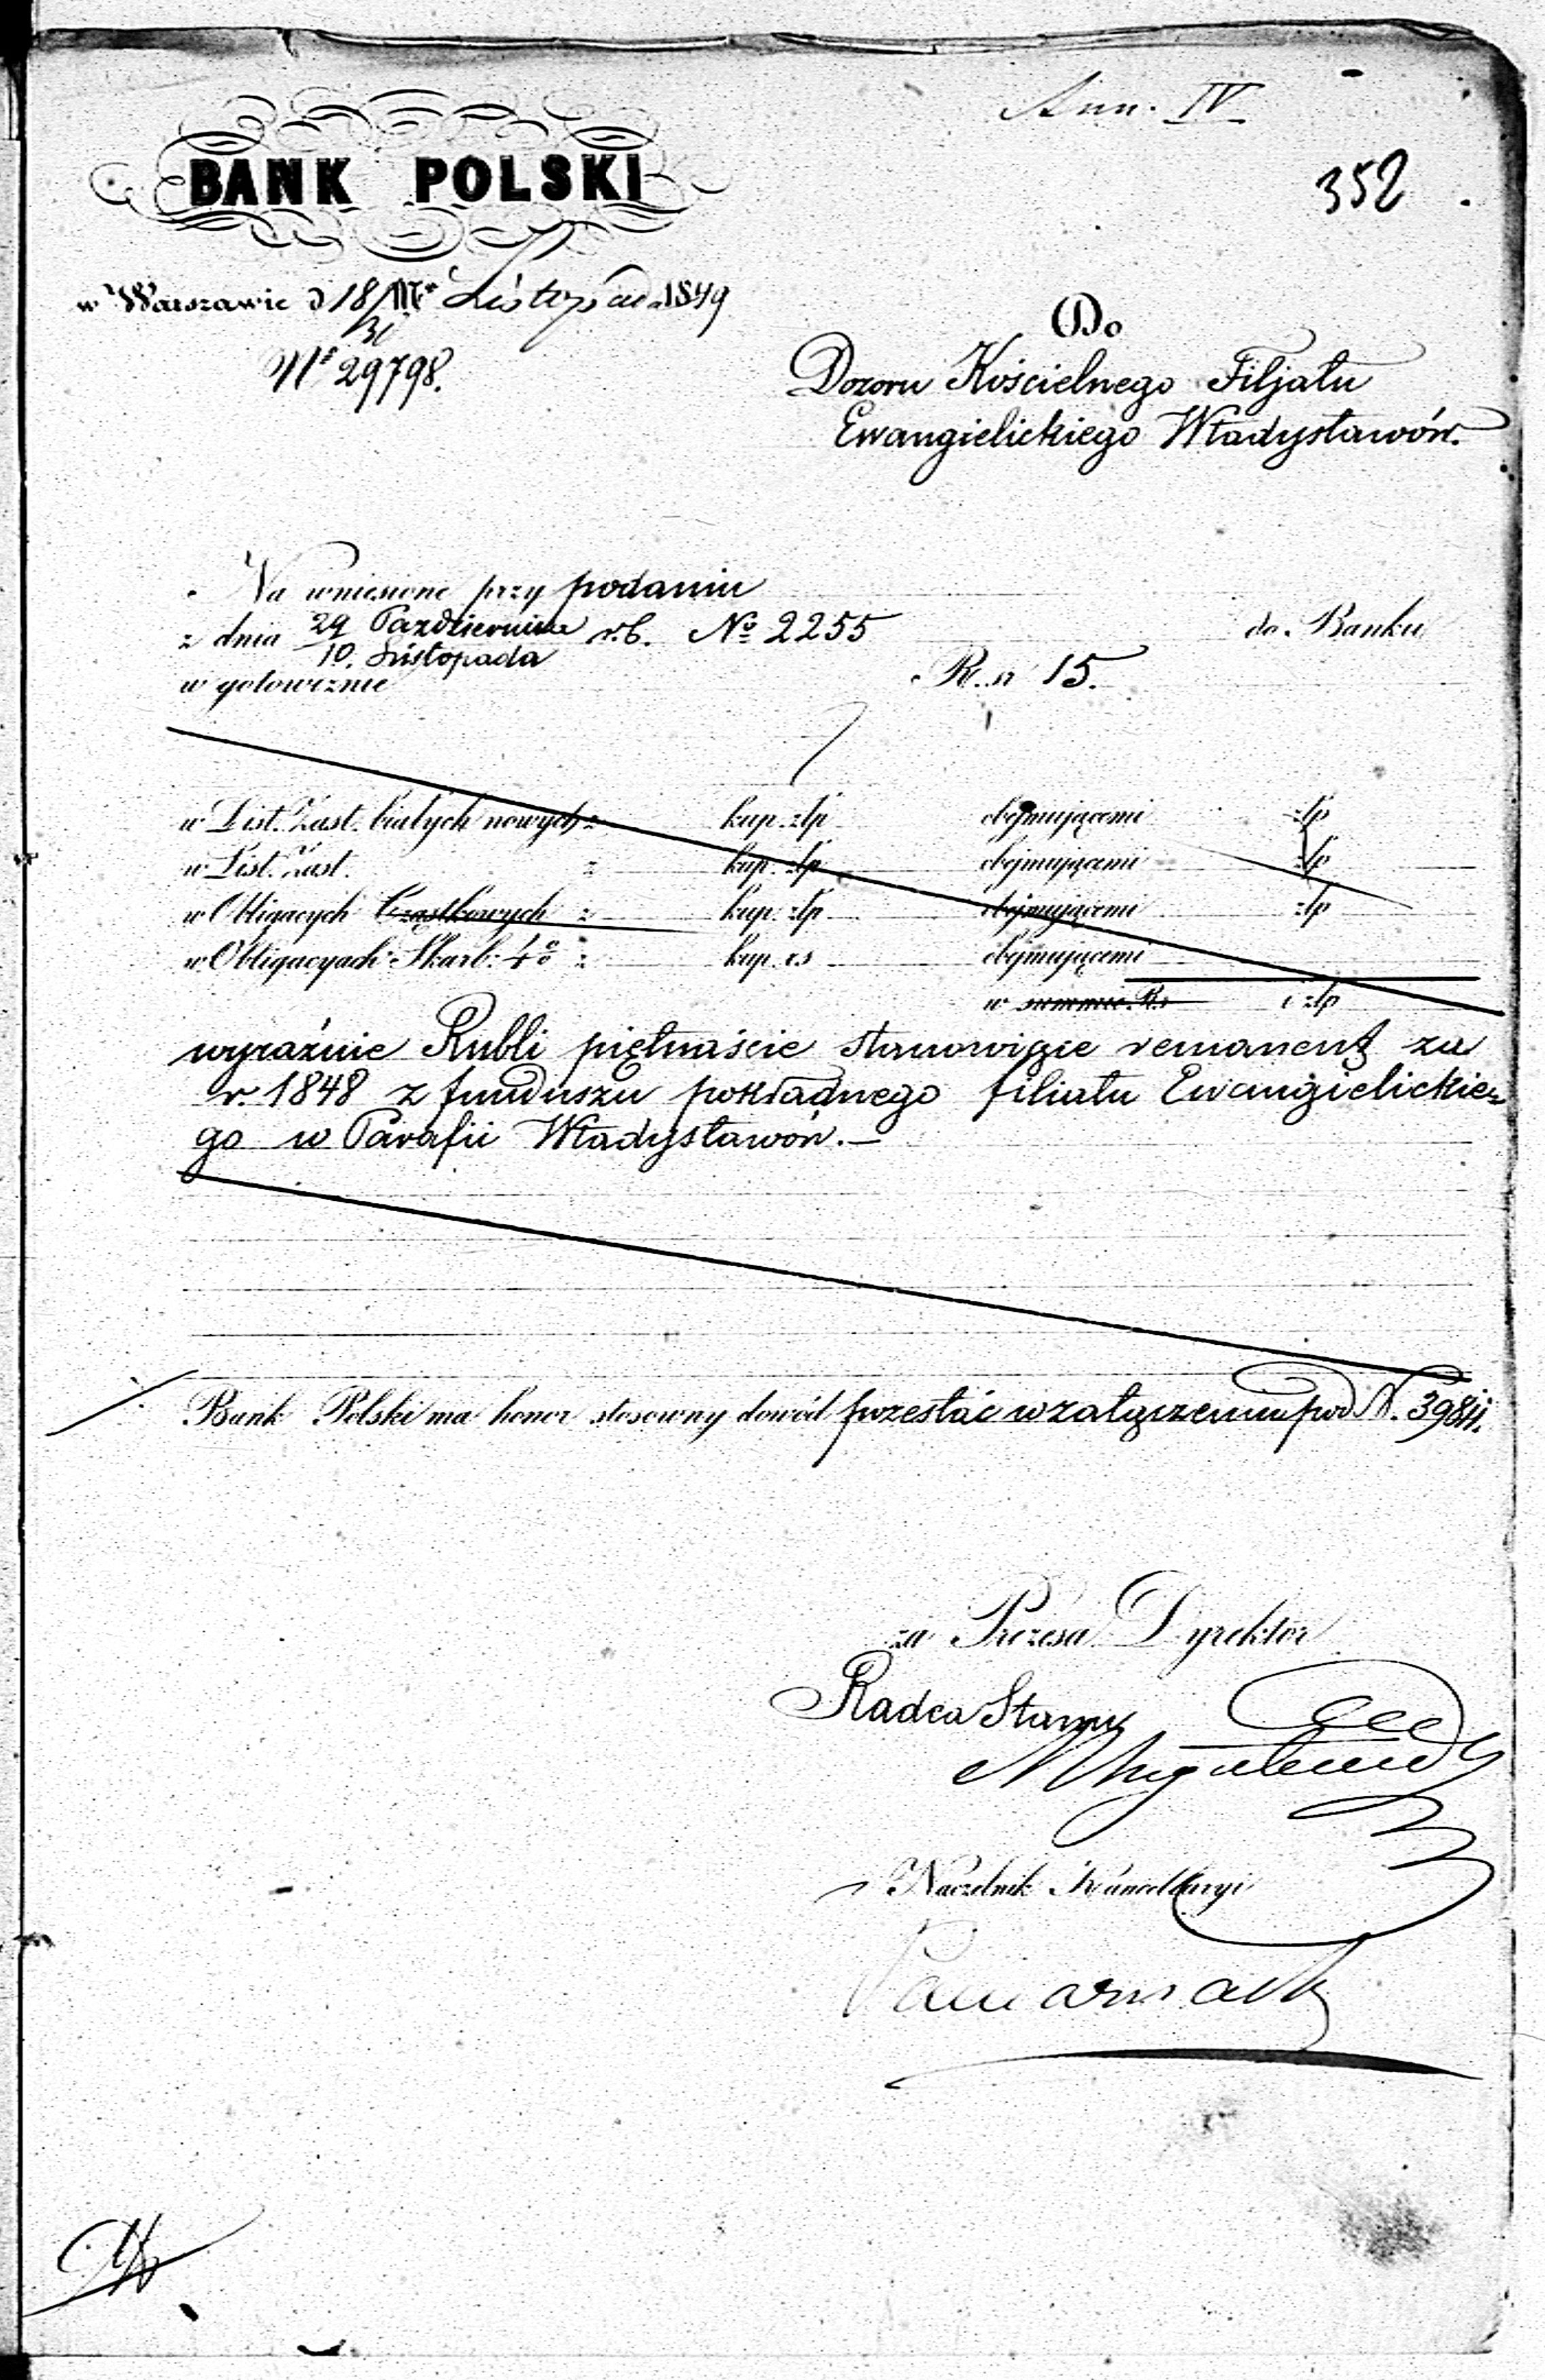 Ann. IV
352
BANK POLSKI
w Warszawie d 18/30 Listopada 1849
No 29798.
Do
Dozoru Kościelnego Filjału
Ewangielickiego Władysławów.
Na wniesione przy podaniu
z dnia 29 Października / 10. Listopada r.b. No 2255 do Banku
w gotowiznie R. sr 15.
w List. Zast. białych nowych z kup. złp obejmującemi złp
w List. Zast. z kup. złp obejmującemi złp
w Obligacych Cząstkowych z kup. złp obejmującemi złp
w Obligacyach Skarb: 4% z kup. rs obejmującemi
w summie Rs i złp
wyraźnie Rubli piętnaście stanowiące remanent za
r. 1848 z funduszu pokładnego filiału Ewangielickie=
go w Parafii Władysławów. —
Bank Polski ma honor stosowny dowód przesłać w załączeniu pod N.
za Prezesa Dyrektor
Radca Stanu
Naczelnik Kancellaryi